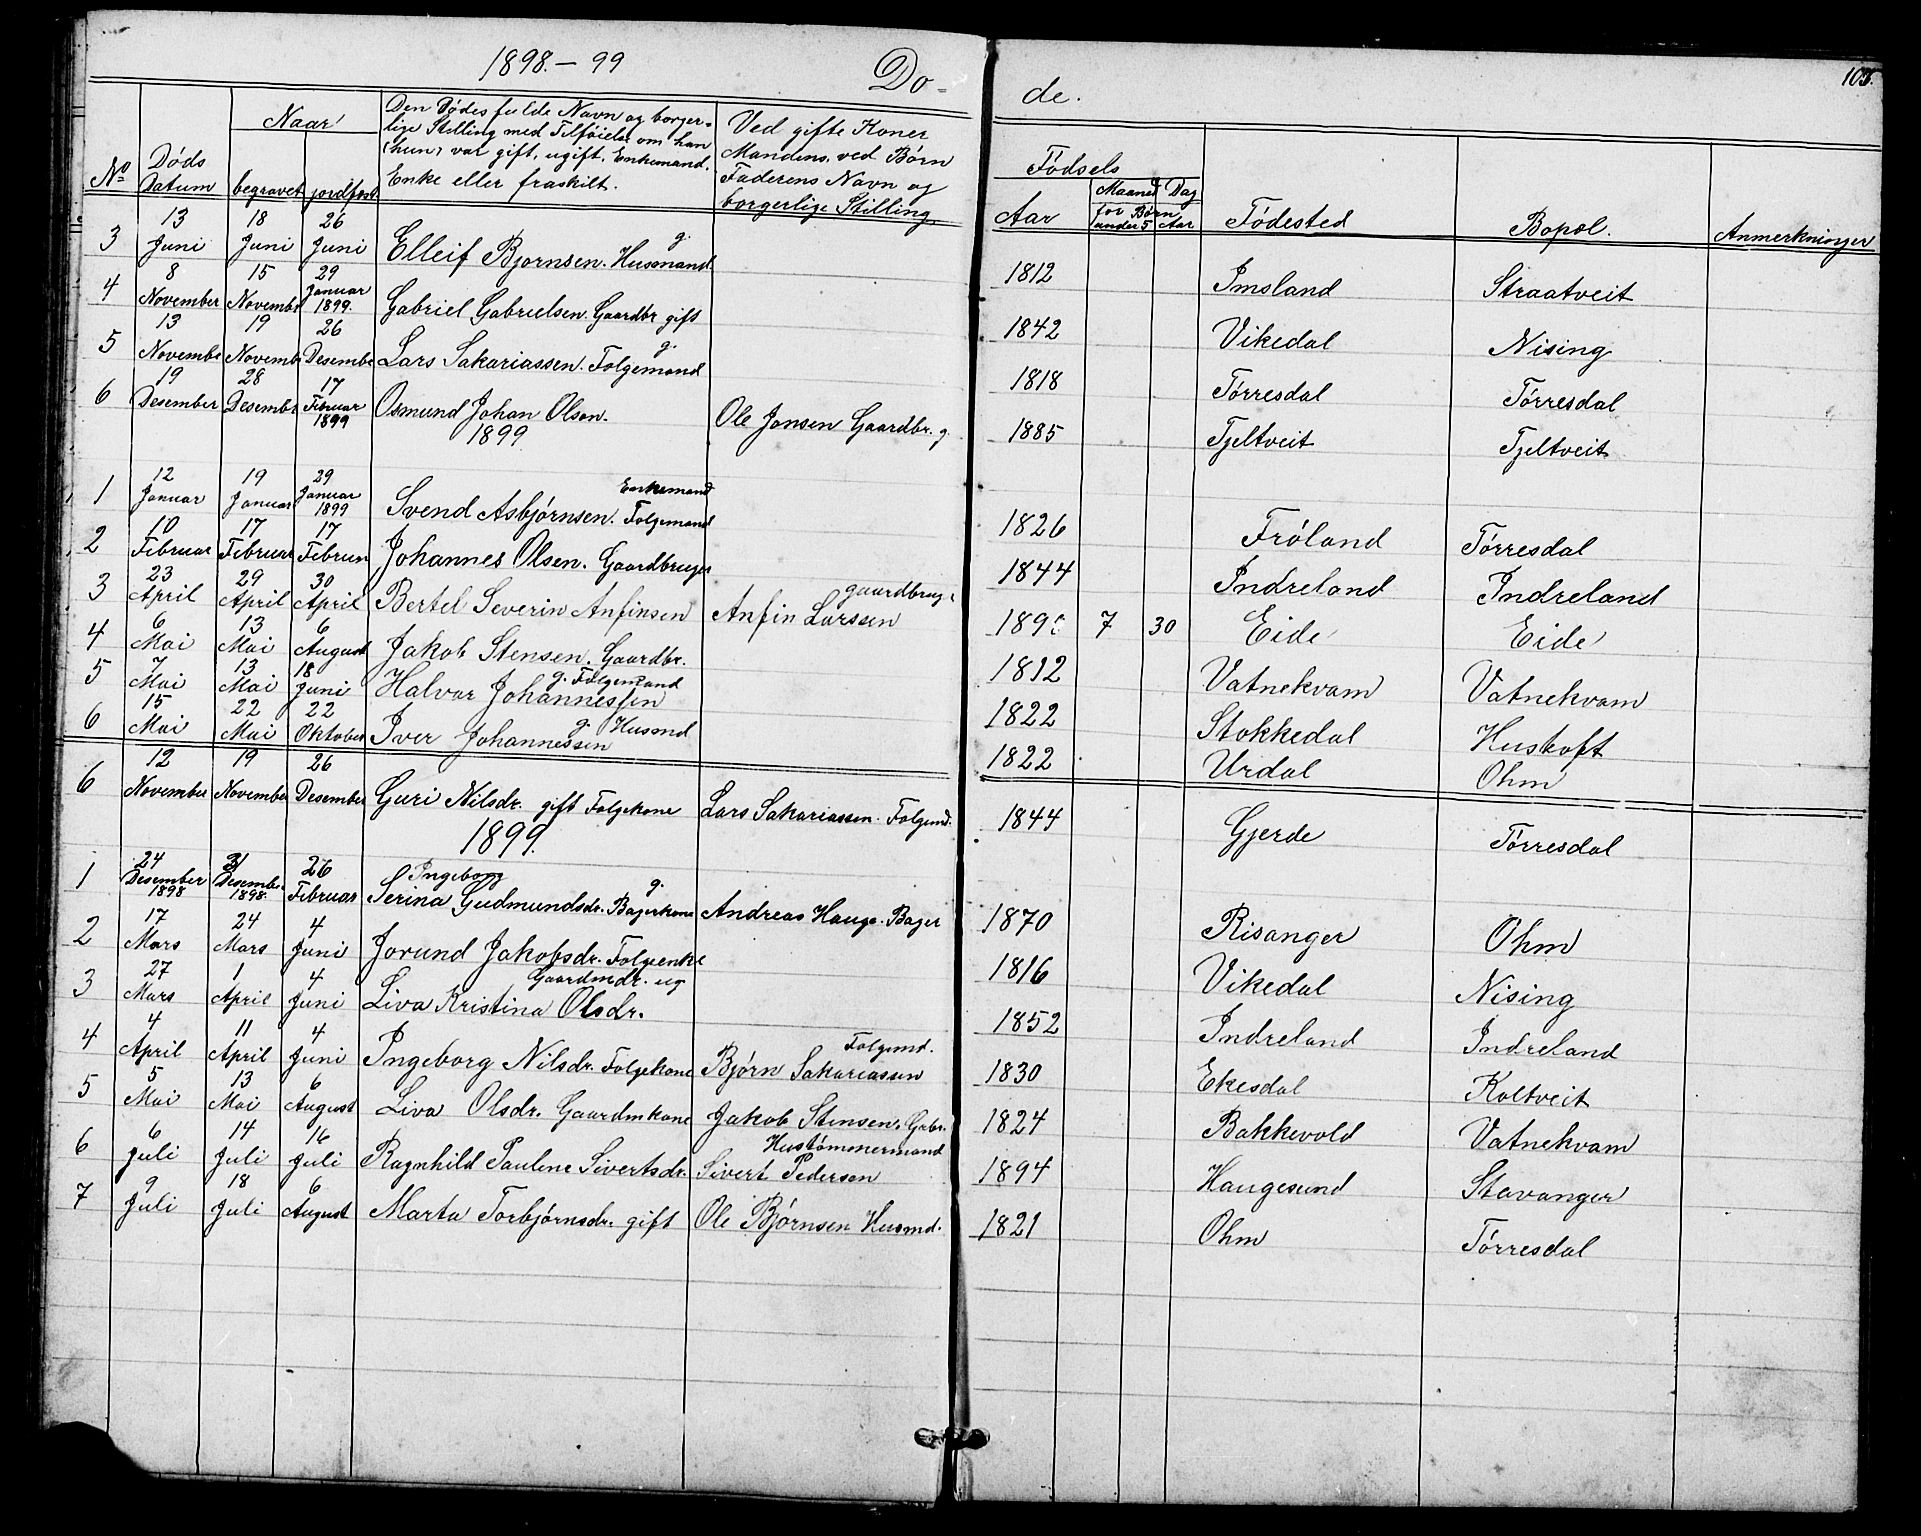 1898.–99 Dø- de. 103.
No Døds Datum Naar begravet jordfæst Den Dødes fulde Navn og borger=lige Stilling med Tilføielse om han (hun) var gift, ugift, Enkemand, Enke eller fraskilt. Ved gifte Koner Mandens, ved Børn Faderens Navn og borgerlige Stilling Fødsels Aar Maaned Dag for Børn under 5 Aar Fødested Bopæl. Anmerkninger
3 13 Juni 18 Juni 26 Juni Elleif Bjørnsen. Husmand g. 1812 Imsland Straatveit
4 8 November 15 Novembr 29 Januar 1899. Gabriel Gabrielsen. Gaardbr gift 1842 Vikedal Nising
5 13 Novembe 19 Novemb 26 Desembe Lars Sakariassen. Folgemand g. 1818 Tørresdal Tørresdal
6 19 Desember 28 Desembe 17 Februar 1899 Osmund Johan Olson. Ole Jonsen Gaardbr. g. 1885 Tjeltveit Tjeltveit
1899
1 12 Januar 19 Januar 29 Januar 1899 Svend Asbjørnsen. Enkemand Folgemand 1826 Frøland Tørresdal
2 10 Februar 17 Februar 17 Februa Johannes Olsen. Gaardbruger 1844 Indreland Indreland
3 23 April 29 April 30 April Bertel Severin Anfinsen Anfin Larssen gaardbrug 189 7 30 Eide Eide
4 6 Mai 13 Mai 6 August Jakob Stensen. Gaardbr. 1812 Vatnekvam Vatnekvam
5 7 Mai 13 Mai 18 Juni Halvor Johannessen g. Folgemand 1822 Stokkedal Hustoft
6 15 Mai 22 Mai 22 Oktober Iver Johannessen g Husmd 1822 Urdal Ohm
6 12 November 19 November 26 Desember Guri Nilsdr. gift Folgekone Lars Sakariassen. Folgemd. 1844 Gjerde Tørresdal
1899.
1 24 Desember 1898 31 Desembe 1898. 26 Februar Ingeborg Serina Gudmundsdr. Bagerkone g. Andreas Hauge. Bager 1870 Risanger Ohm
2 17 Mars 24 Mars 4 Juni Jorund Jakobsdr. Folgeenke 1816 Vikedal Nising
3 27 Mars 1 April 4 Juni Liva Kristina Olsdr. Gaardmdr. ug 1852 Indreland Indreland
4 4 April 11 April 4 Juni Ingeborg Nilsdr. Folgekone Bjørn Sakariassen Folgemd. 1830 Ekesdal Koltveit
5 5 Mai 13 Mai 6 August Liva Olsdr. Gaardmkone Jakob Stensen. Gabr. 1824 Bakkevold Vatnekvam
6 6 Juli 14 Juli 16 Juli Ragnhild Pauline Sivertsdr. Sivert Pederson Hustømmermand 1894 Haugesund Stavanger
7 9 Juli 18 Juli 6 August Marta Torbjørnsdr. gift Ole Bjørnsen Husmd. 1821 Ohm Tørresdal